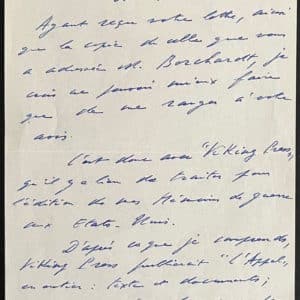 Ayant reçu votre lettre, ainsi
que la copie de celle que vous
a adressée M. Borchardt, je
crois ne pouvoir mieux faire
que de me ranger à votre
avis.
C'est donc avec "Viking Press"
qu'il y a lieu de traiter pour
l'édition de mes Mémoires de guerre
aux Etats-Unis.
D'après ce que je comprends,
Viking Press publierait "L'Appel"
en entier : texte et documents ;